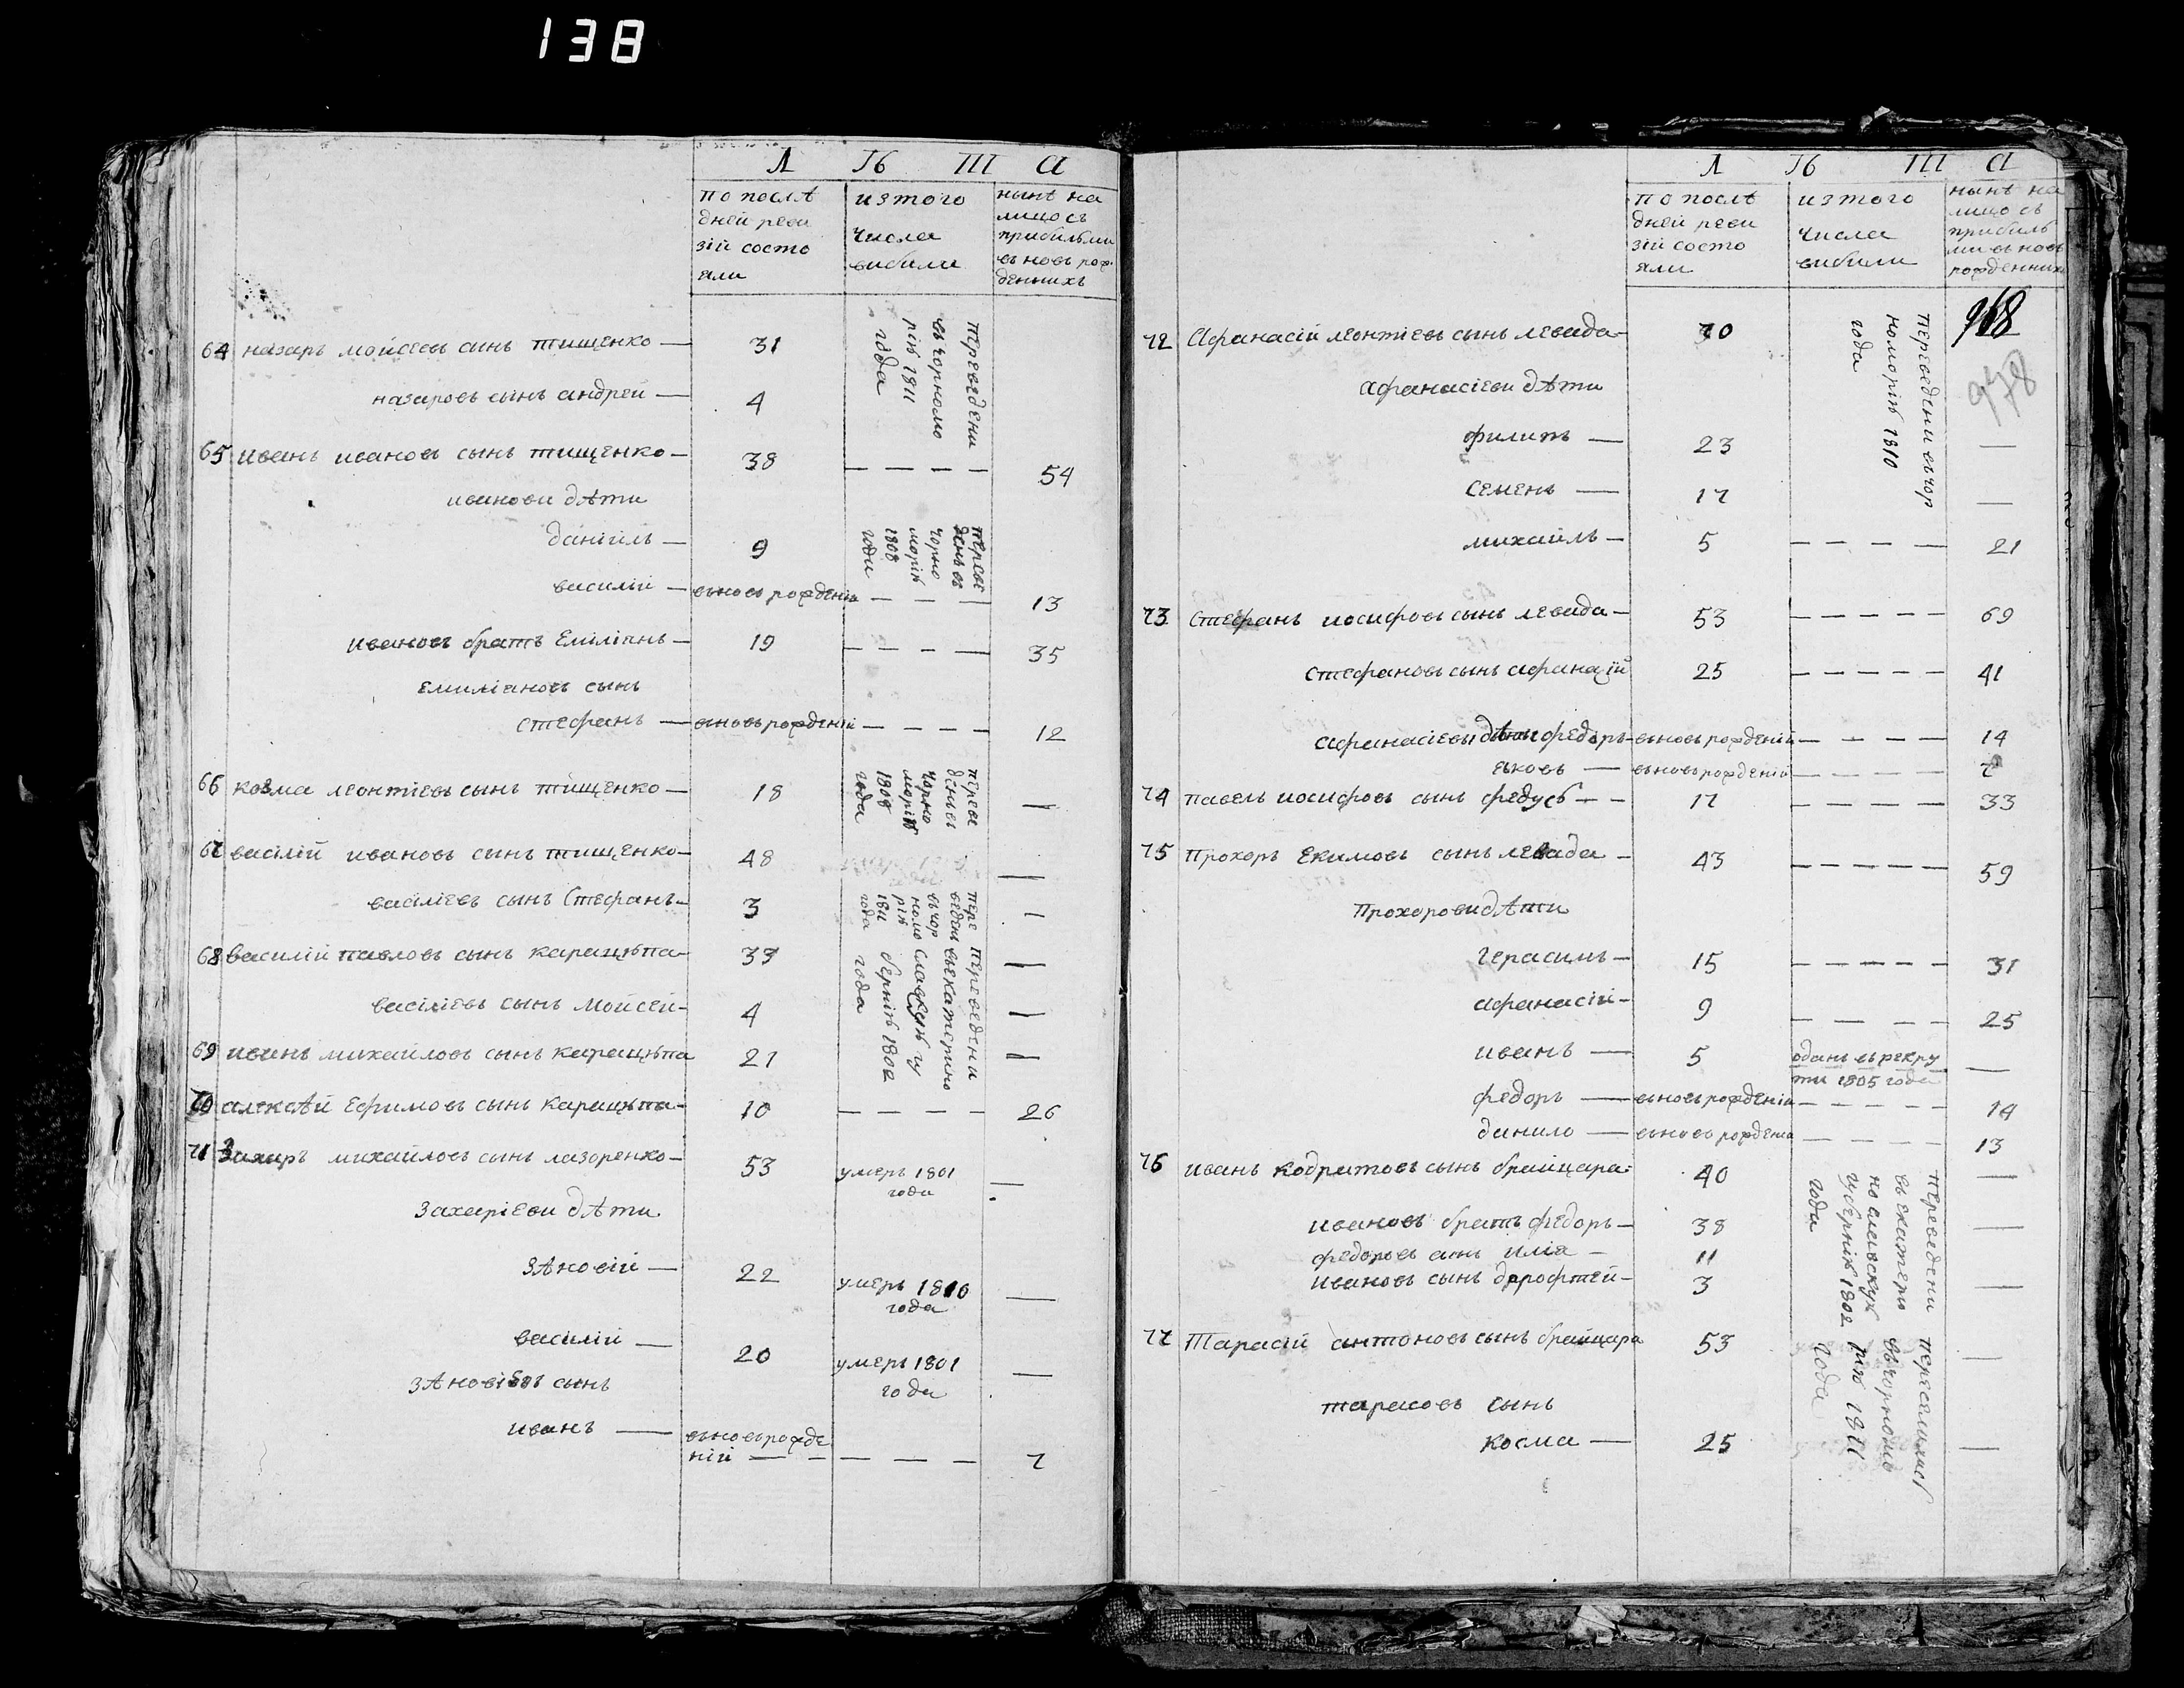 138
Л Ѣ Т А
по послѣ
дней реви
зій состо
яли
изъ того
числа
выбыли
нынѣ на
лицо съ
прибылыми
вновь рож
денныхъ
64 назаръ мойсеевъ сынъ тищенко — 31
переведени
въ чорномо
рію 1811
года
назаровъ сынъ андрей — 4
65 иванъ ивановъ сынъ тищенко — 38 — — — — 54
иванови дѣти
даніилъ — 9
переве
денъ въ
чорно
морію
1808
года
василій — вновь рожденій — — — 13
ивановъ братъ Емиліянъ — 19 — — — — 35
емиліяновъ сынъ
стефанъ — вновь рожденій — — — — 12
66 козма леонтіевъ сынъ тищенко — 18 —
переве
денъ въ
чорно
морію
1808
года
67 василій ивановъ сынъ тищенко — 48 —
василіевъ сынъ Стефанъ — 3 —
пере
веденъ
въ чор
номо
рію
1811
года
68 василій павловъ сынъ карацюпа — 33 —
переведени
въ екатерино
славску гу
бернію 1802
года
василіевъ сынъ Мойсей — 4 —
69 иванъ михайловъ сынъ карацюпа 21 —
70 алексѣй Ефимовъ сынъ карацюпа — 10 — — — — 26
71 Захаръ михайловъ сынъ лазоренко — 53 умеръ 1801 —
года
Захаріеви дѣти
зѣновій — 22 умеръ 1810 —
года
василій — 20 умеръ 1801 —
года
зѣновіевъ сынъ
иванъ — вновь рожде
ній — — — — — 7
Л Ѣ Т А
по послѣ
дней реви
зій состо
яли
изъ того
числа
выбыли
нынѣ на
лицо съ
прибылы
ми вновь
рожденних
968
978
72 Афанасій леонтіевъ сынъ левада — 70
переведени въ чор
номорію 1810
года
афанасіеви дѣти
филипъ — 23 —
Семенъ — 17 —
михайлъ — 5 — — — — 21
73 Стефанъ иосифовъ сынъ левада — 53 — — — — 69
стефановъ сынъ афанасій 25 — — — — 41
афанасіеви дѣти федоръ — вновь рожденій — — — — 14
яковъ — вновь рожденій — — — — 7
74 павелъ иосифовъ сынъ федусь — — 17 — — — — 33
75 Прохоръ Екимовъ сынъ левада — 43 — — — — 59
Прохорови дѣти
герасимъ — 15 — — — — 31
афанасій — 9 — — — 25
иванъ — 5 оданъ въ рекру —
ти 1805 года
федоръ — вновь рожденій — — — — 14
данило — вновь рожденій — — — — 13
76 иванъ кодратовъ сынъ брайцара — 40 —
переведени
въ екатери
нославскую
губернію 1802
года
ивановъ братъ федоръ — 38 —
федоровъ сынъ илія — 11
ивановъ сынъ дорофтей — 3 —
77 Тарасій антоновъ сынъ брайцара 53 —
переселились
въ чорномо
рію 1811
года
тарасовъ сынъ
косма — 25 —